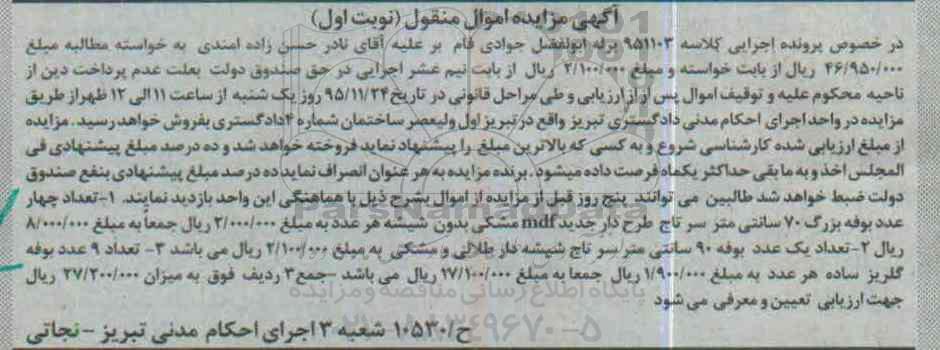 آگهی مزایده اموال منقول (نوبت اول)
در خصوص پرونده اجرایی کلاسه ۹۵۱۱۰۳ برله ابولفضل جوادی فام بر علیه آقای نادر حسن زاده امندی به خواسته مطالبه مبلغ
۴۶/۹۵۰/۰۰۰ ریال از بابت خواسته و مبلغ ۲/۱۰۰/۰۰۰ ریال از بابت نیم عشر اجرایی در حق صندوق دولت بعلت عدم پرداخت دین از
ناحیه محکوم علیه و توقیف اموال پس از ارزیابی و طی مراحل قانونی در تاریخ ۹۵/۱۱/۲۴ روز یک شنبه از ساعت ۱۱ الی ۱۲ ظهر از طریق
مزایده در واحد اجرای احکام مدنی دادگستری تبریز واقع در تبریز اول ولیعصر ساختمان شماره ۴ دادگستری بفروش خواهد رسید . مزایده
از مبلغ ارزیابی شده کارشناسی شروع و به کسی که بالاترین مبلغ را پیشنهاد نماید فروخته خواهد شد و ده درصد مبلغ پیشنهادی فی
المجلس اخذ و به مابقی حداکثر یکماه فرصت داده میشود . برنده مزایده به هر عنوان انصراف نماید ده درصد مبلغ پیشنهادی بنفع صندوق
دولت ضبط خواهد شد طالبین می توانند پنج روز قبل از مزایده از اموال بشرح ذیل با هماهنگی این واحد بازدید نمایند. ۱-تعداد چهار
عدد بوفه بزرگ ۷۰ سانتی متر سر تاج طرح دار جدید mdf مشکی بدون شیشه هر عدد به مبلغ ۲/۰۰۰/۰۰۰ ریال جمعاً به مبلغ ۸/۰۰۰/۰۰۰
ریال ۲-تعداد یک عدد بوفه ۹۰ سانتی متر سر تاج شیشه دار طلائی و مشکی به مبلغ ۲/۱۰۰/۰۰۰ ریال می باشد ۳- تعداد ۹ عدد بوفه
گلریز ساده هر عدد به مبلغ ۱/۹۰۰/۰۰۰ ریال جمعا به مبلغ ۱۷/۱۰۰/۰۰۰ ریال می باشد -جمع ۳ ردیف فوق به میزان ۲۷/۲۰۰/۰۰۰ ریال
جهت ارزیابی تعیین و معرفی می شود
پایگاه اطلاع رسانی مناقصه و مزایده
ح/۱۰۵۳۰ شعبه ۳ اجرای احکام مدنی تبریز - نجاتی
ParsNamadData